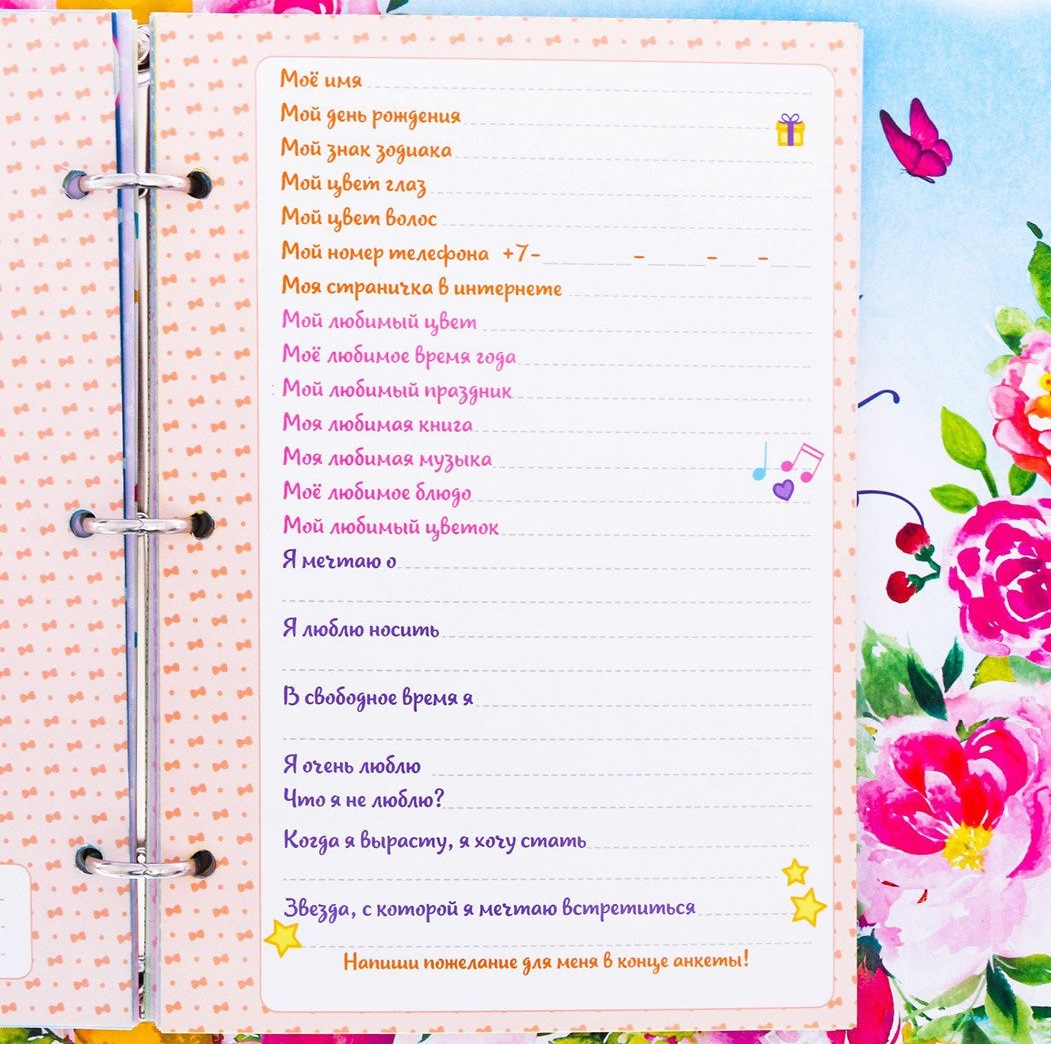 Моё имя
Мой день рождения
Мой знак зодиака
Мой цвет глаз
Мой цвет волос
Мой номер телефона +7- - - -
Моя страничка в интернете
Мой любимый цвет
Моё любимое время года
Мой любимый праздник
Моя любимая книга
Моя любимая музыка
Моё любимое блюдо
Мой любимый цветок
Я мечтаю о
Я люблю носить
В свободное время я
Я очень люблю
Что я не люблю?
Когда я вырасту, я хочу стать
Звезда, с которой я мечтаю встретиться
Напиши пожелание для меня в конце анкеты!